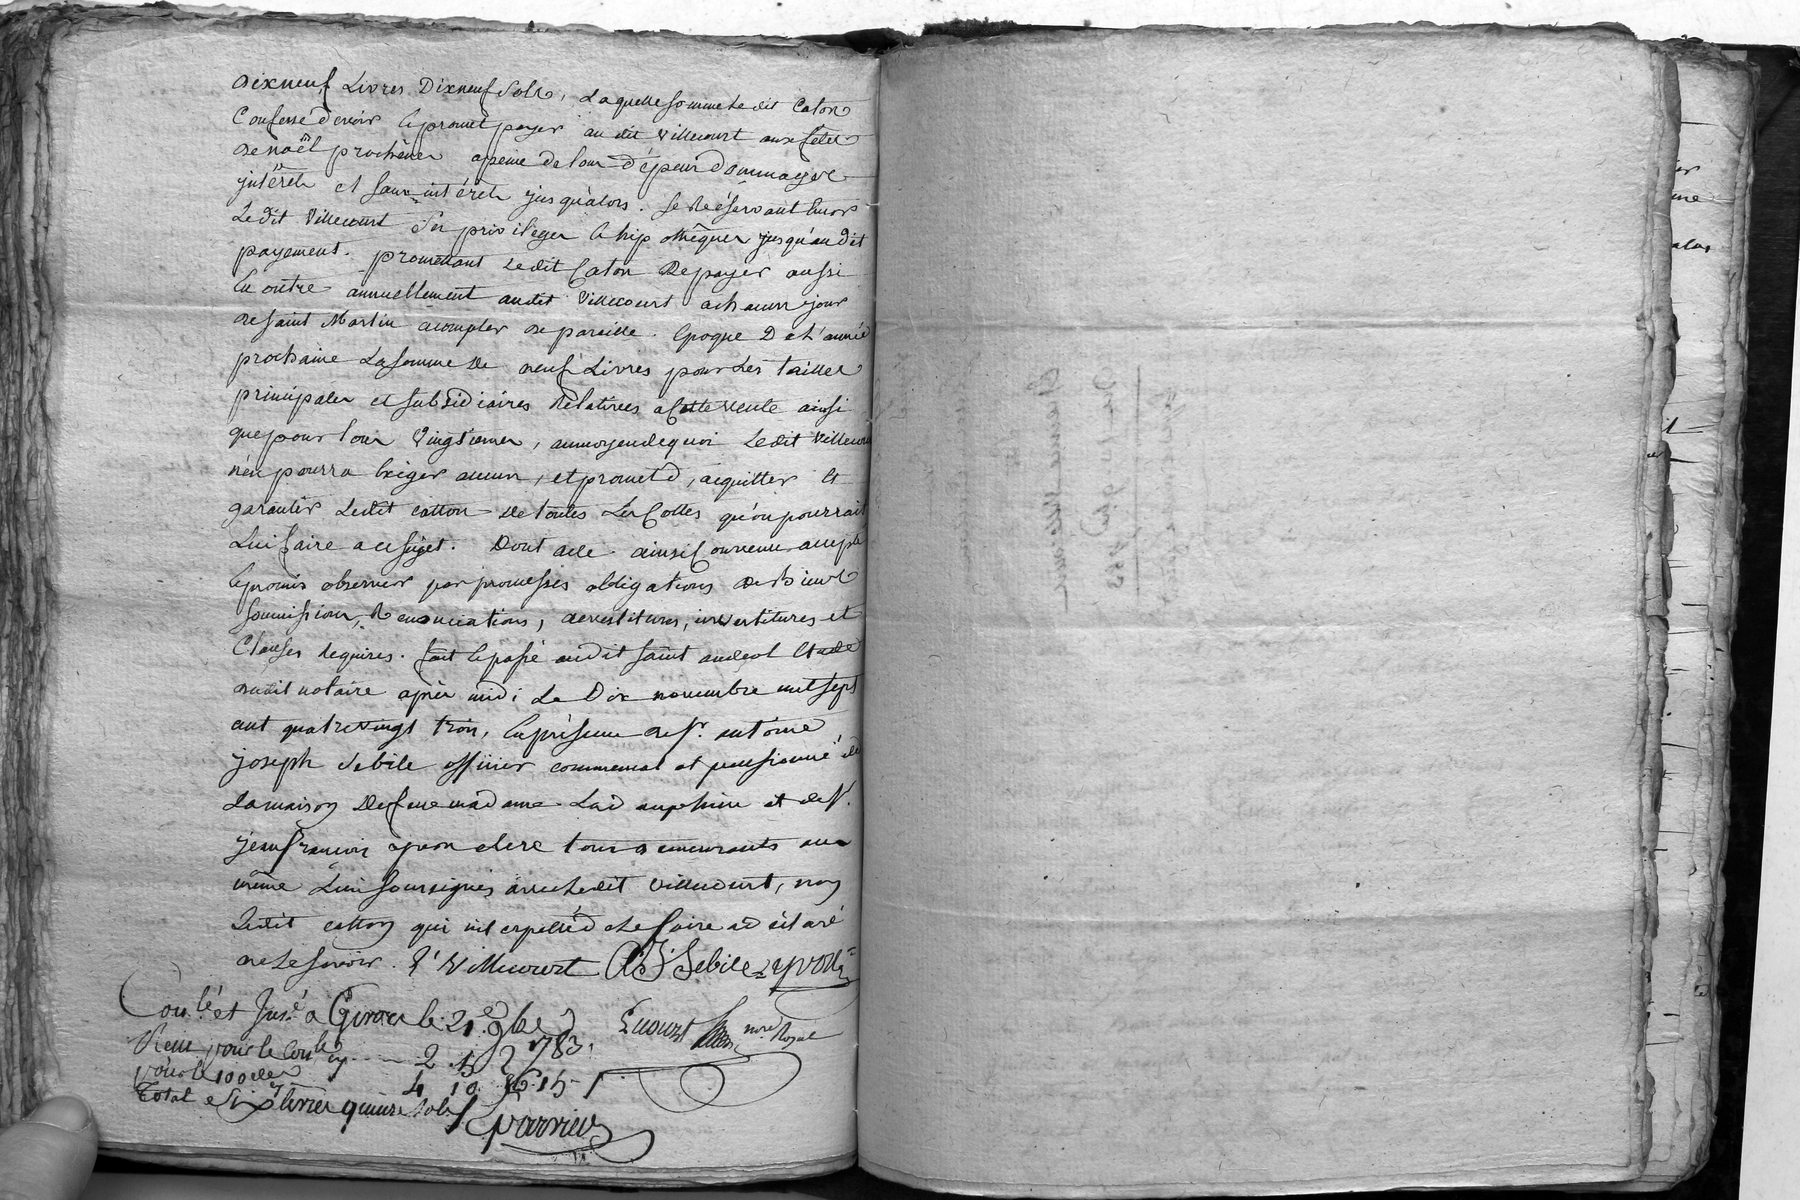 dixneuf Livres Dixneuf Sols, Laquelle somme Ledit Caton
Confesse devoir & promet payer au dit Villecourt aux fetes
de noël prochênes a peine de tous dépens dommages
intérets et sans intérets jusqu'alors. se Réservant
Ledit Villecourt Ses privileges & hipothêques jusqu'audit
payement. promettant Ledit Caton De payer aussi
En outre annuellement audit Villecourt a chacun jour
de saint Martin acompter de pareille Epoque De L'année
prochaine La somme de neuf Livres pour Les tailles
principales et subsidiaires Relatives a Cette vente ainsi
que pour tous Vingtiemes, aumoyendequoi Ledit Villecourt
n'en pourra Exiger aucun, et promet d'acquitter &
garantir Ledit catton de toutes Les Cottes qu'on pourrait
Lui faire a ce sujet. Dont acte. ainsi Convenu accepté
& promis observer par promesses obligations de Biens
soumissions, Renonciations, devestitures, investitures et
Clauses requises. fait & passé audit saint andeol Etude
dudit notaire après midi Le Dix novembre mil sept
cent quatrevingt trois, En présence de Sr. antoine
joseph Sebile officier commensal et pensionné de
La maison De feue madame La dauphine et de Sr.
jean françois yvon clerc tous demeurants au
même Lieu soussignés avec Ledit Villecourt, non
Ledit catton qui interpellé de Le faire a déclaré
ne Le savoir. Villecourt A J Sebile yvon
Con.lé et Ins.é a Givors le 21 9bre 1783.
Reçu pour le Con.le
pour le 100 den
Total Six livres quinze sols
nre Royal